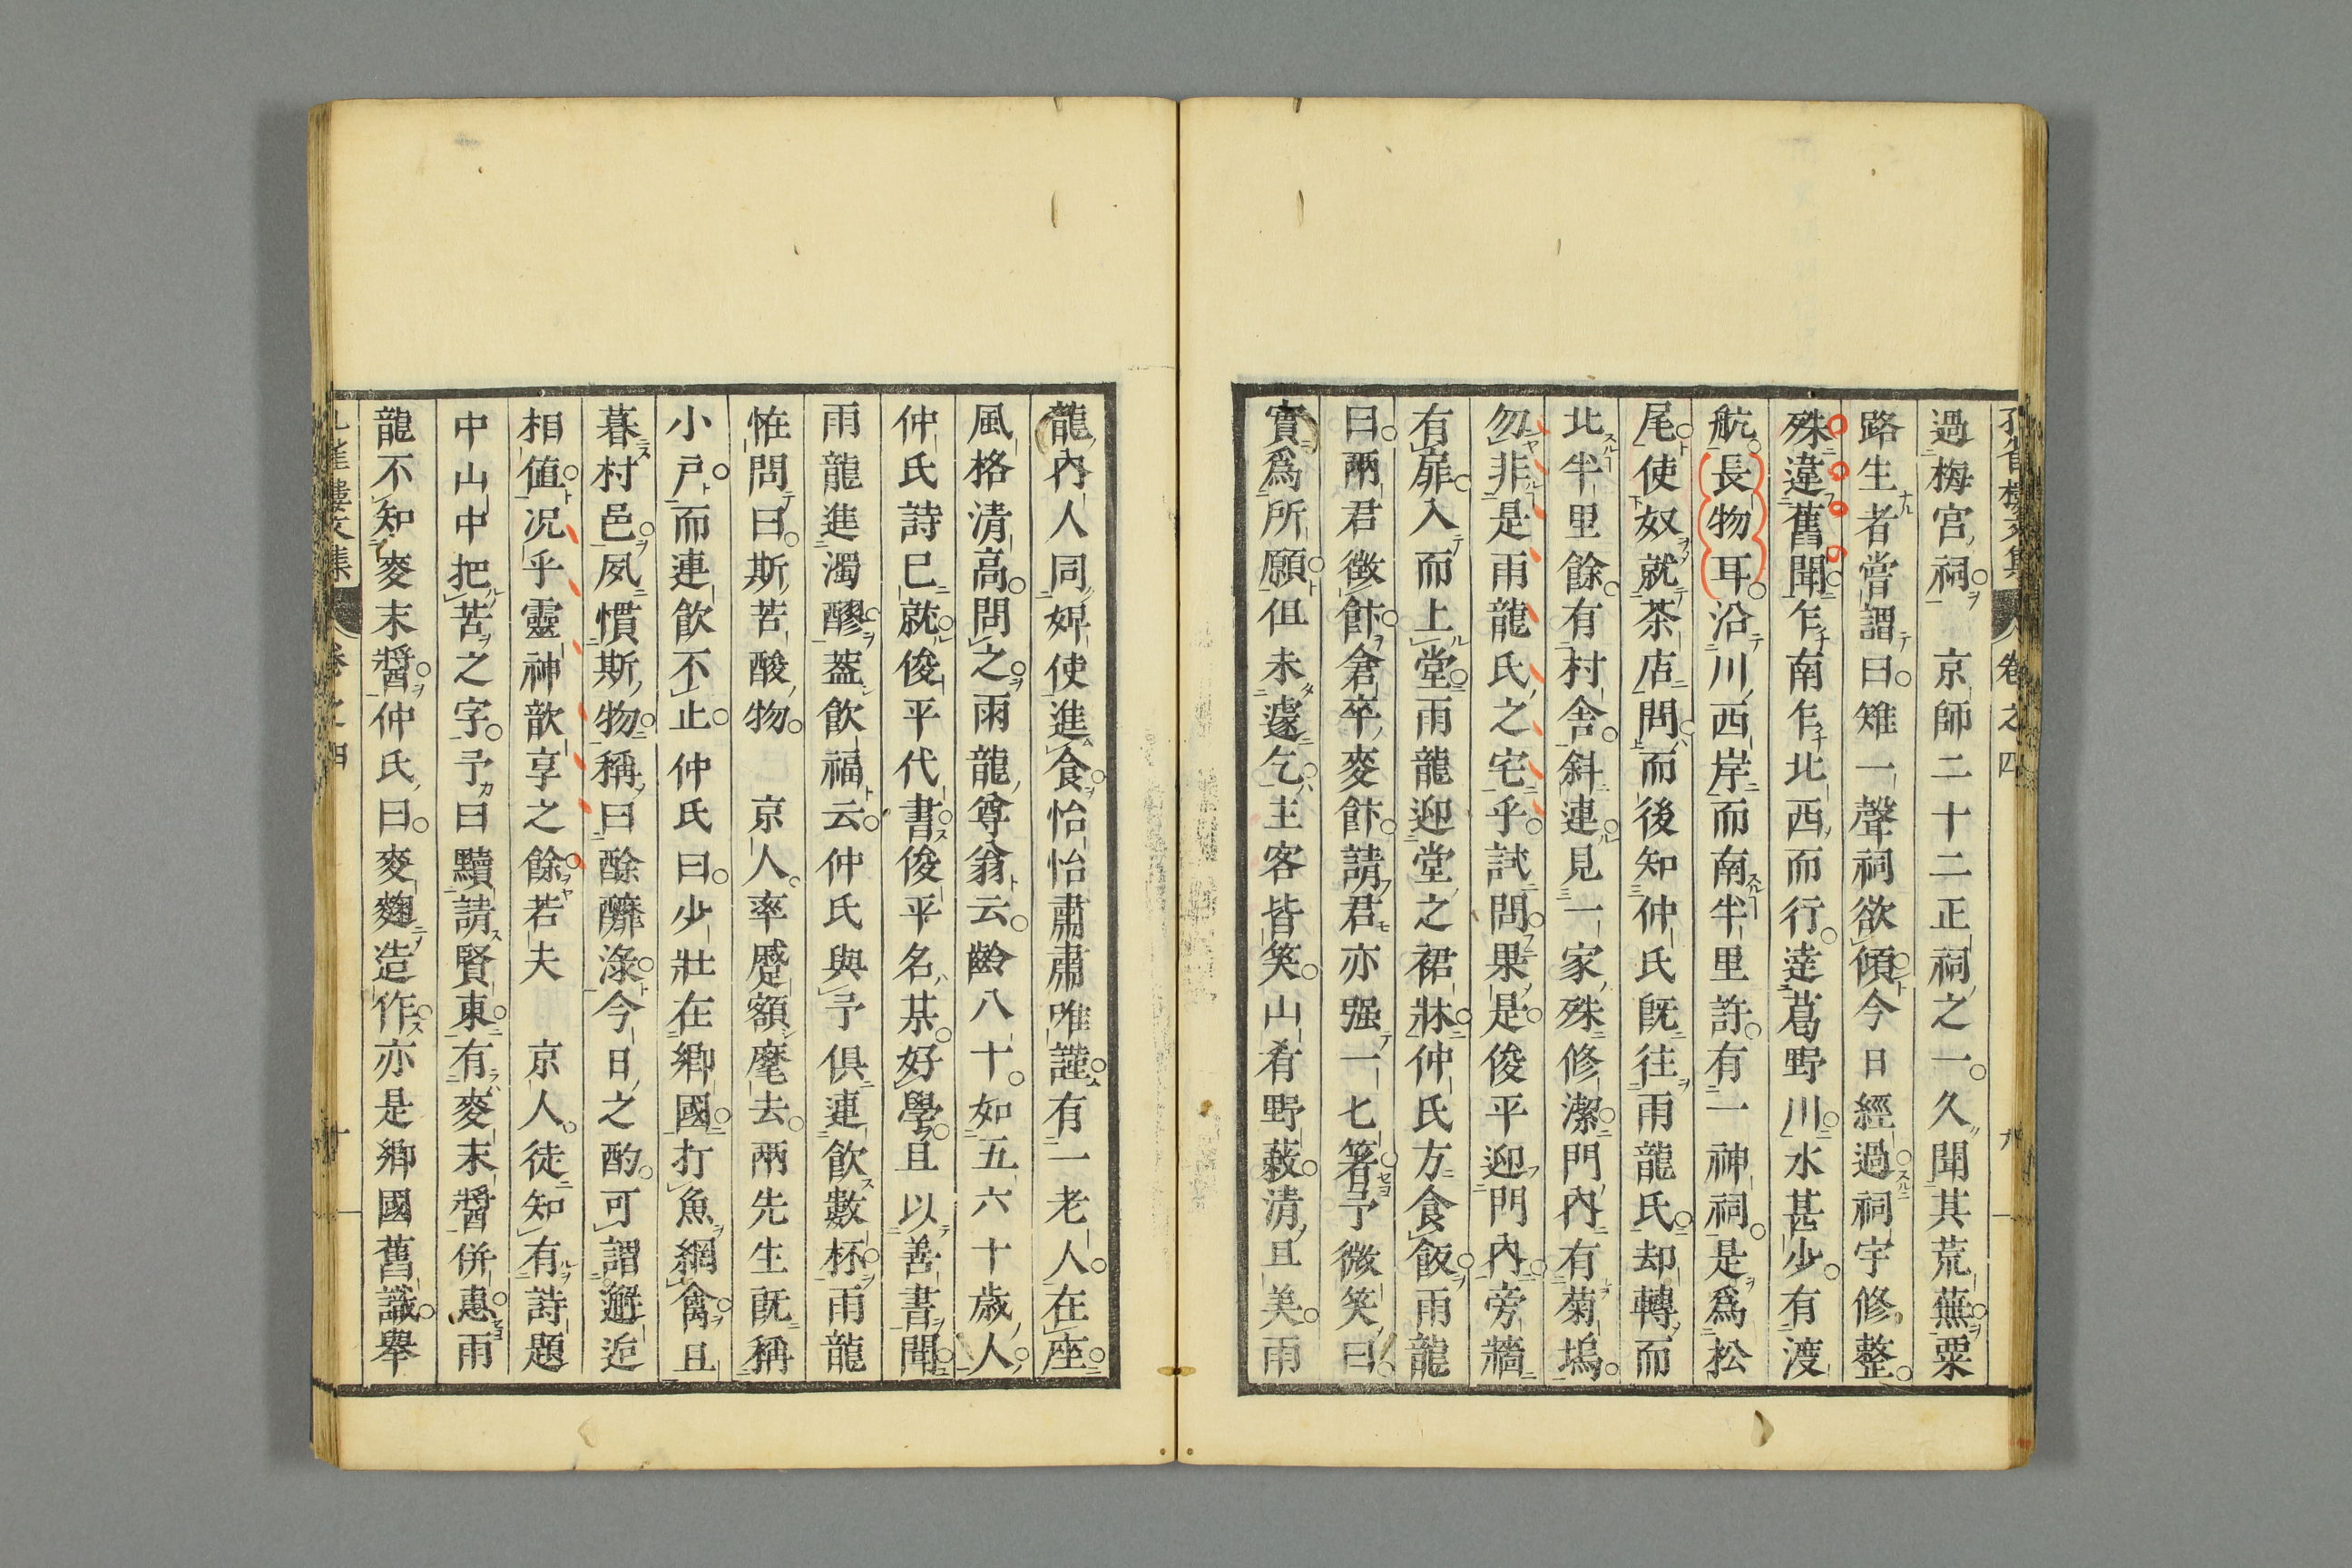 孔雀樓文集 卷之四 九
過梅宮祠京師二十二正祠之一久聞其荒蕪粟
路生者嘗謂曰雉一聲祠欲傾今日經過祠宇修整
殊違舊聞乍南乍北西而行達葛野川水甚少有渡
航長物耳沿川西岸而南半里許有一神祠是爲松
尾使奴就茶店問而後知仲氏既往雨龍氏却轉而
北半里餘有村舍斜連見一家殊修潔門內有菊塢
勿非是雨龍氏之宅乎試問果是俊平迎門內旁牆
有扉入而上堂雨龍迎堂之裙牀仲氏方食飯雨龍
曰兩君徵飰倉卒麥飰請君亦强一七箸予微笑曰
實爲所願但未遽乞主客皆笑山肴野蔌清且美雨
龍內人同婢使進食怡怡肅肅唯謹有一老人在座
風格清高問之雨龍尊翁云齡八十如五六十歲人
仲氏詩已就俊平代書俊平名某好學且以善書聞
雨龍進濁醪葢飲福云仲氏與予俱連飲數杯雨龍
恠問曰斯苦酸物京人率蹙額麾去兩先生既稱
小戸而連飲不止仲氏曰少壯在鄉國打魚網禽且
暮村邑夙慣斯物稱曰酴醿淥今日之酌可謂邂逅
相值况乎靈神歆享之餘若夫京人徒知有詩題
中山中把苦之字予曰黷請賢東有麥末醬併惠雨
龍不知麥末醬仲氏曰麥麴造作亦是鄉國舊識舉
孔雀樓文集 卷之四 十